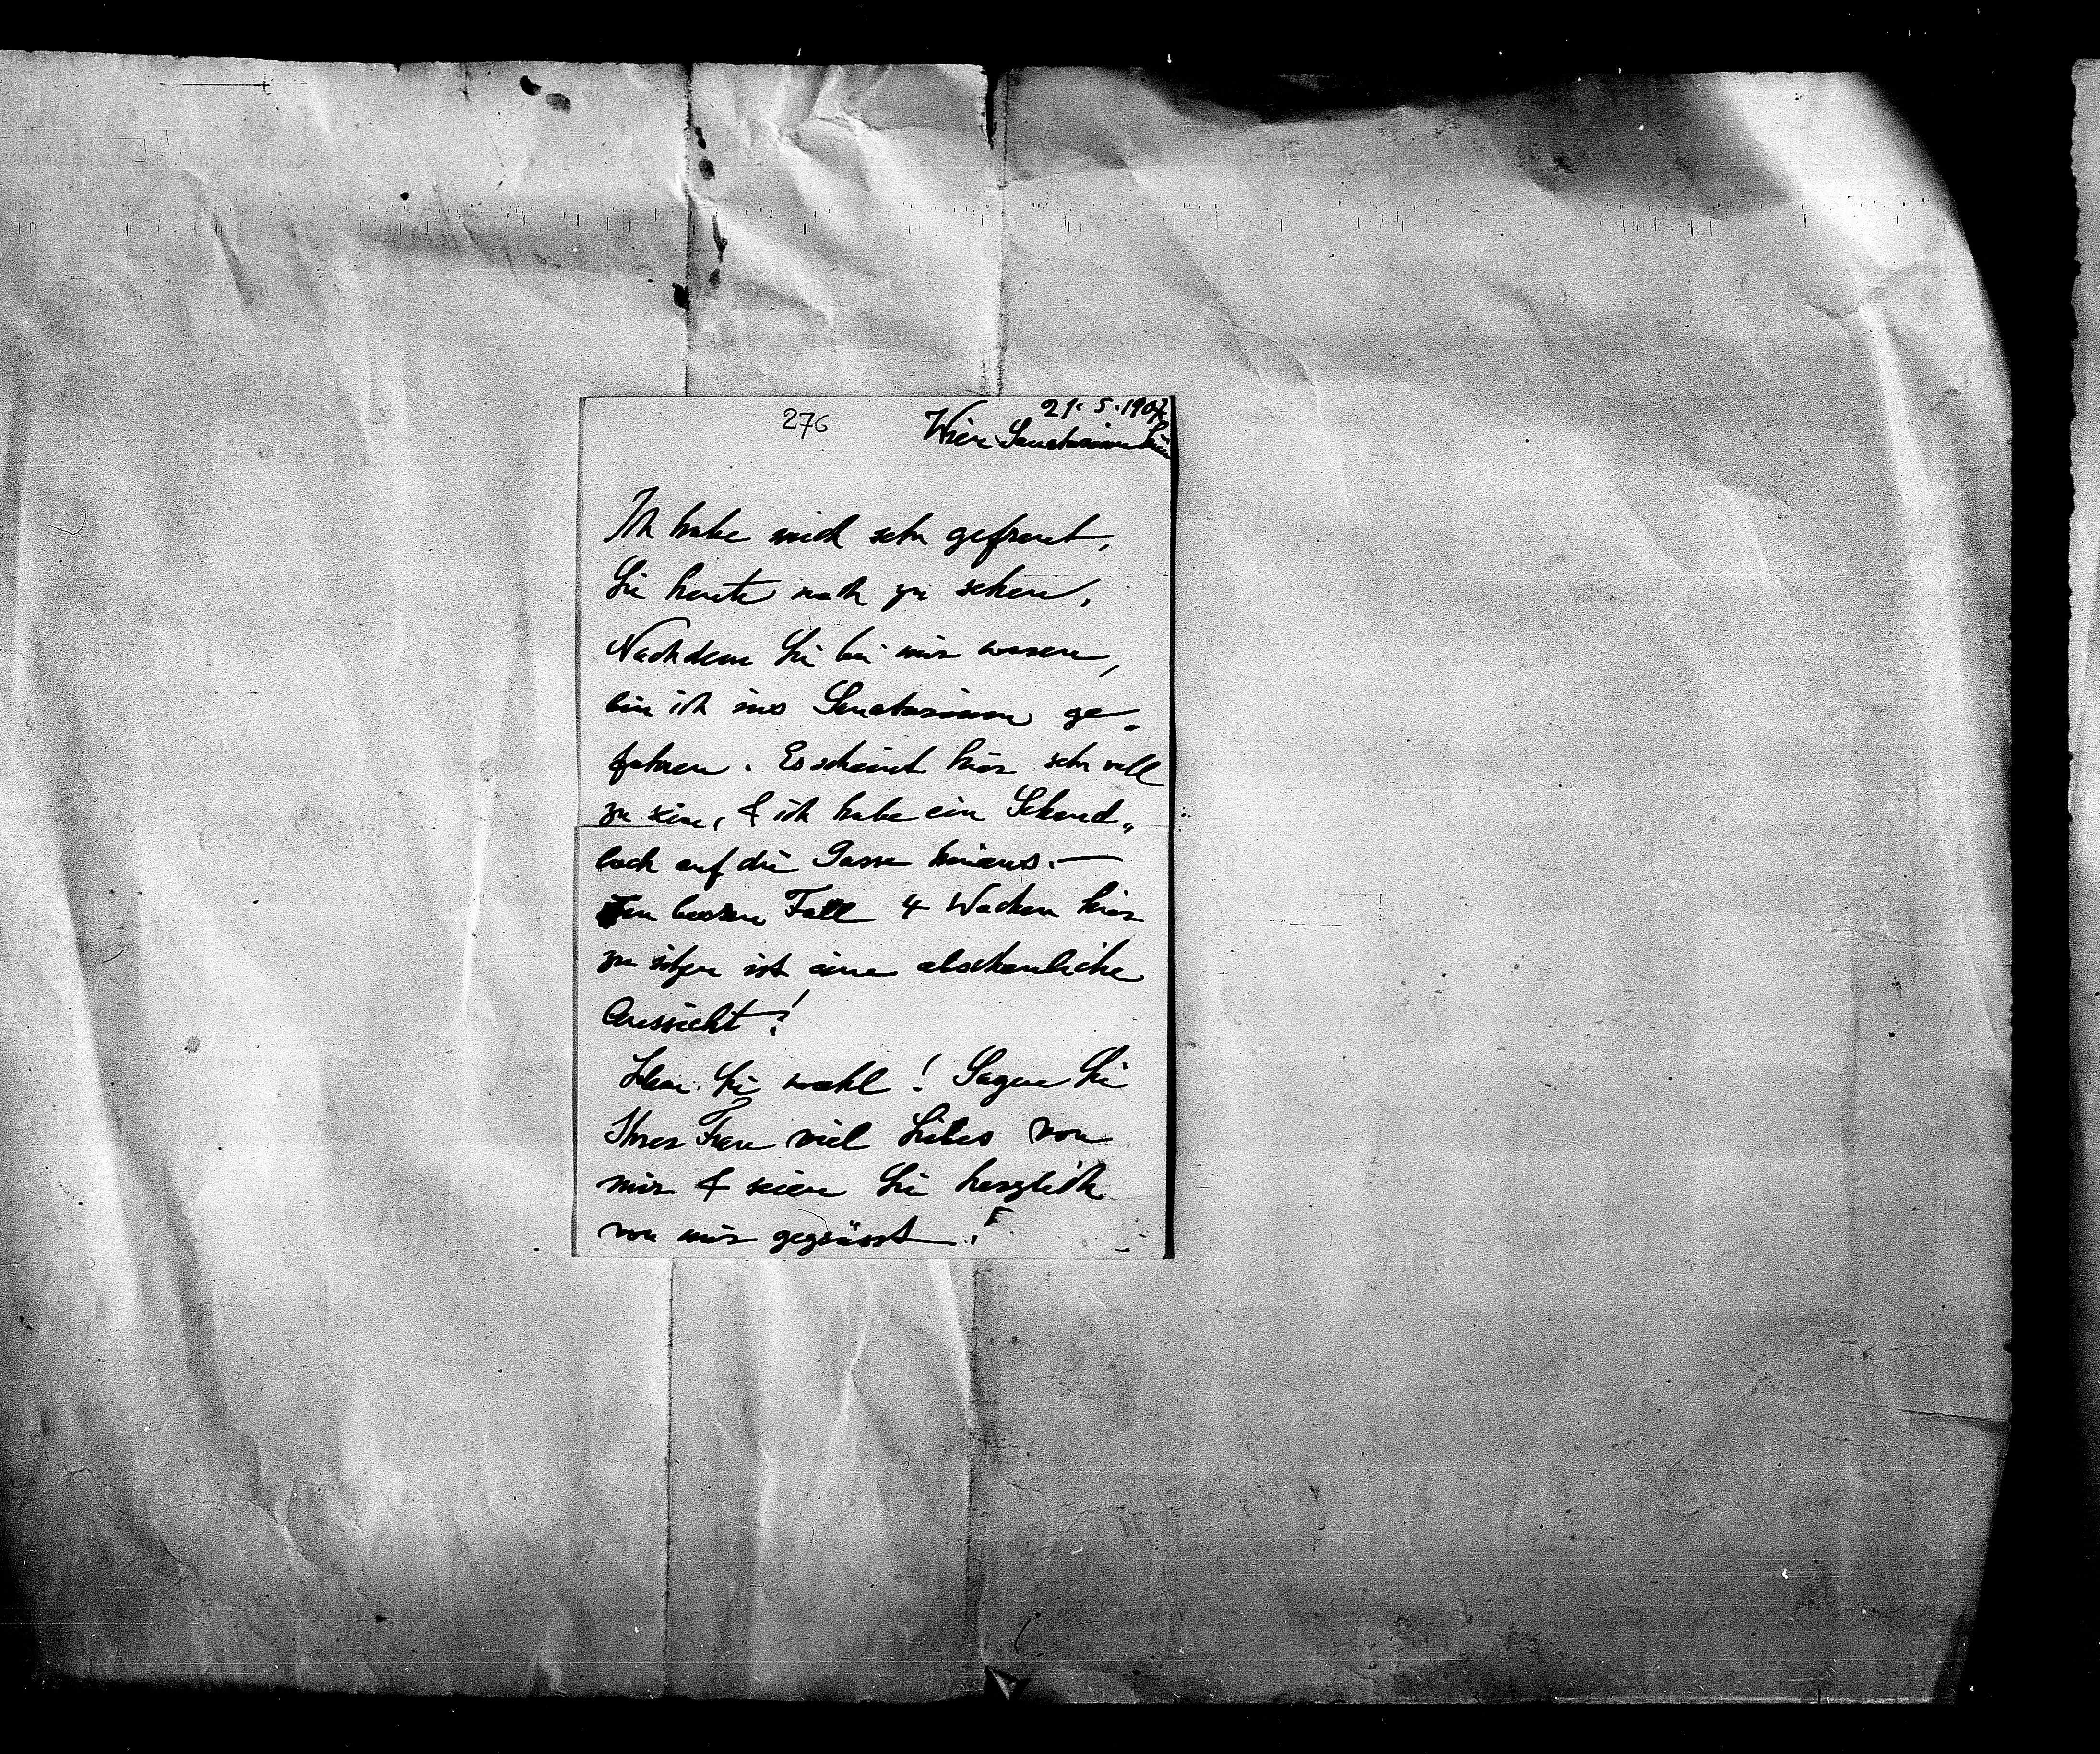 276
21. 5. 1907
Wien Sanatorium
Ich habe mich sehr gefreut,
Sie heute noch zu sehen.
Nachdem Sie bei mir waren,
bin ich ins Sanatorium ge„
fahren. Es scheint hier sehr voll
zu sein, & ich habe ein Schand„
loch auf die Gasse hinaus. —
Im besten Fall 4 Wochen hier
zu sitzen ist eine abscheuliche
Aussicht!
Leben Sie wohl! Sagen Sie
Ihrer Frau viel Liebes von
mir & seien Sie herzlich
von mir gegrüsst!